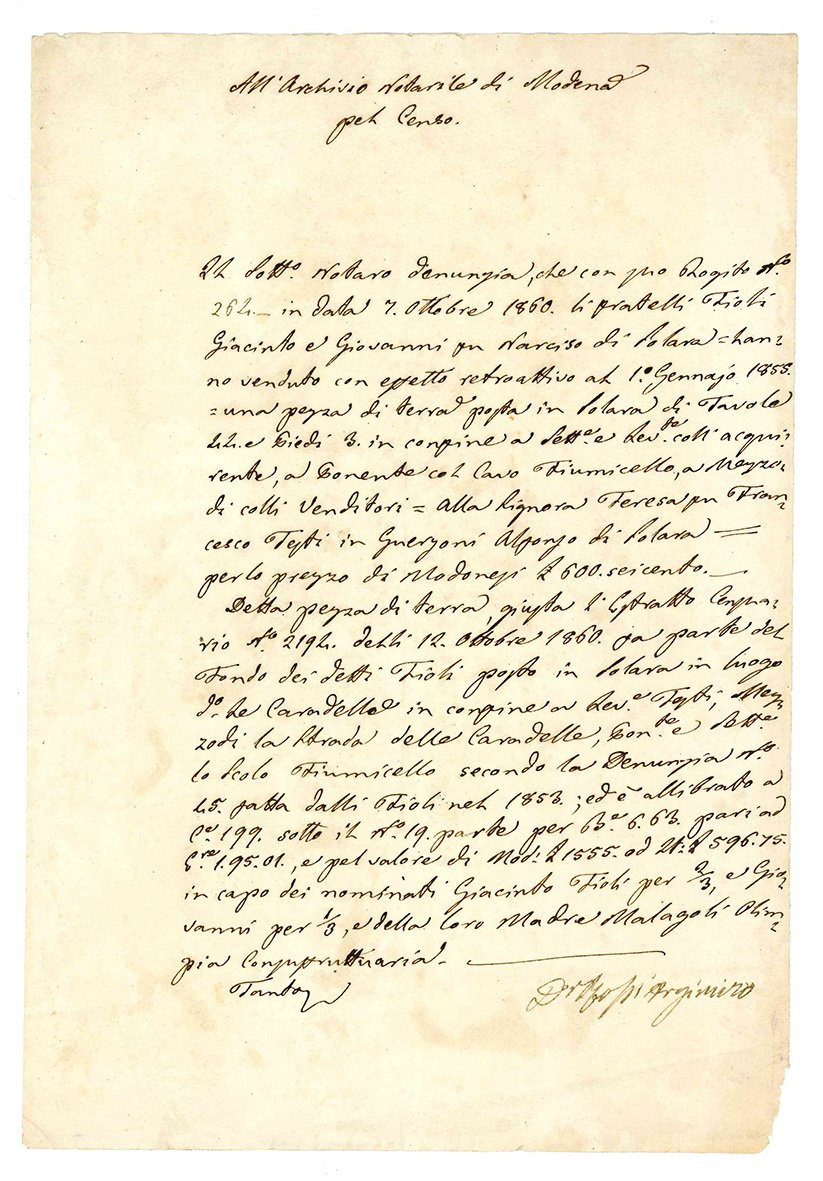 All' Archivio Notarile di Modena
pel Censo.
Il Sott.o Notaro denunzia, che con suo Rogito N.o
262. in data 7. Ottobre 1860. li fratelli Fioli
Giacinto e Giovanni fu Narciso di Solara = han=
no venduto con effetto retroattivo al 1.o Gennajo 1855.
= una pezza di terra posta in Solara di Tavole
22. e Piedi 3. in confine a Sett.e e Lev.te coll' acqui
rente, a Ponente col Cavo Fiumicello, a Mezzo=
di colli Venditori = alla Signora Teresa fu Fran=
cesco Testi in Guerzoni Alfonso di Solara =
per lo prezzo di Modonesi £ 600. seicento. —
Detta pezza di terra, giusta l' Estratto Censua=
rio N.o 2192. delli 12. Ottobre 1860. fa parte del
Fondo dei detti Fioli posto in Solara in luogo
d.o Le Caradelle in confine a Lev.e Testi, Mez=
zodi la Strada delle Caradelle, Pon.te e Sett.e
lo Scolo Fiumicello secondo la Denunzia N.o
25. fatta dalli Fioli nel 1853.; ed è allibrato a
C.e 199. sotto il N.o 19. parte per B.e 6. 63. pari ad
1. 95. 01., e pel valore di Mod: £ 1555. od It: £ 596. 75.
in capo dei nominati Giacinto Fioli per 2/3, e Gio=
vanni per 1/3, e della loro Madre Malagoli Olim=
pia Conusufruttuaria. —
Tanto
D.r Rossi Argimiro